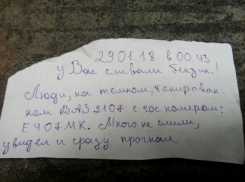 29.01.18 в 00.43
у Вас сливали бензин!
Люди, на темном, тонирован-
ном ВАЗ 2107 с гос номером:
Е 407 МК. Много не слили,
увидел и сразу прогнал.